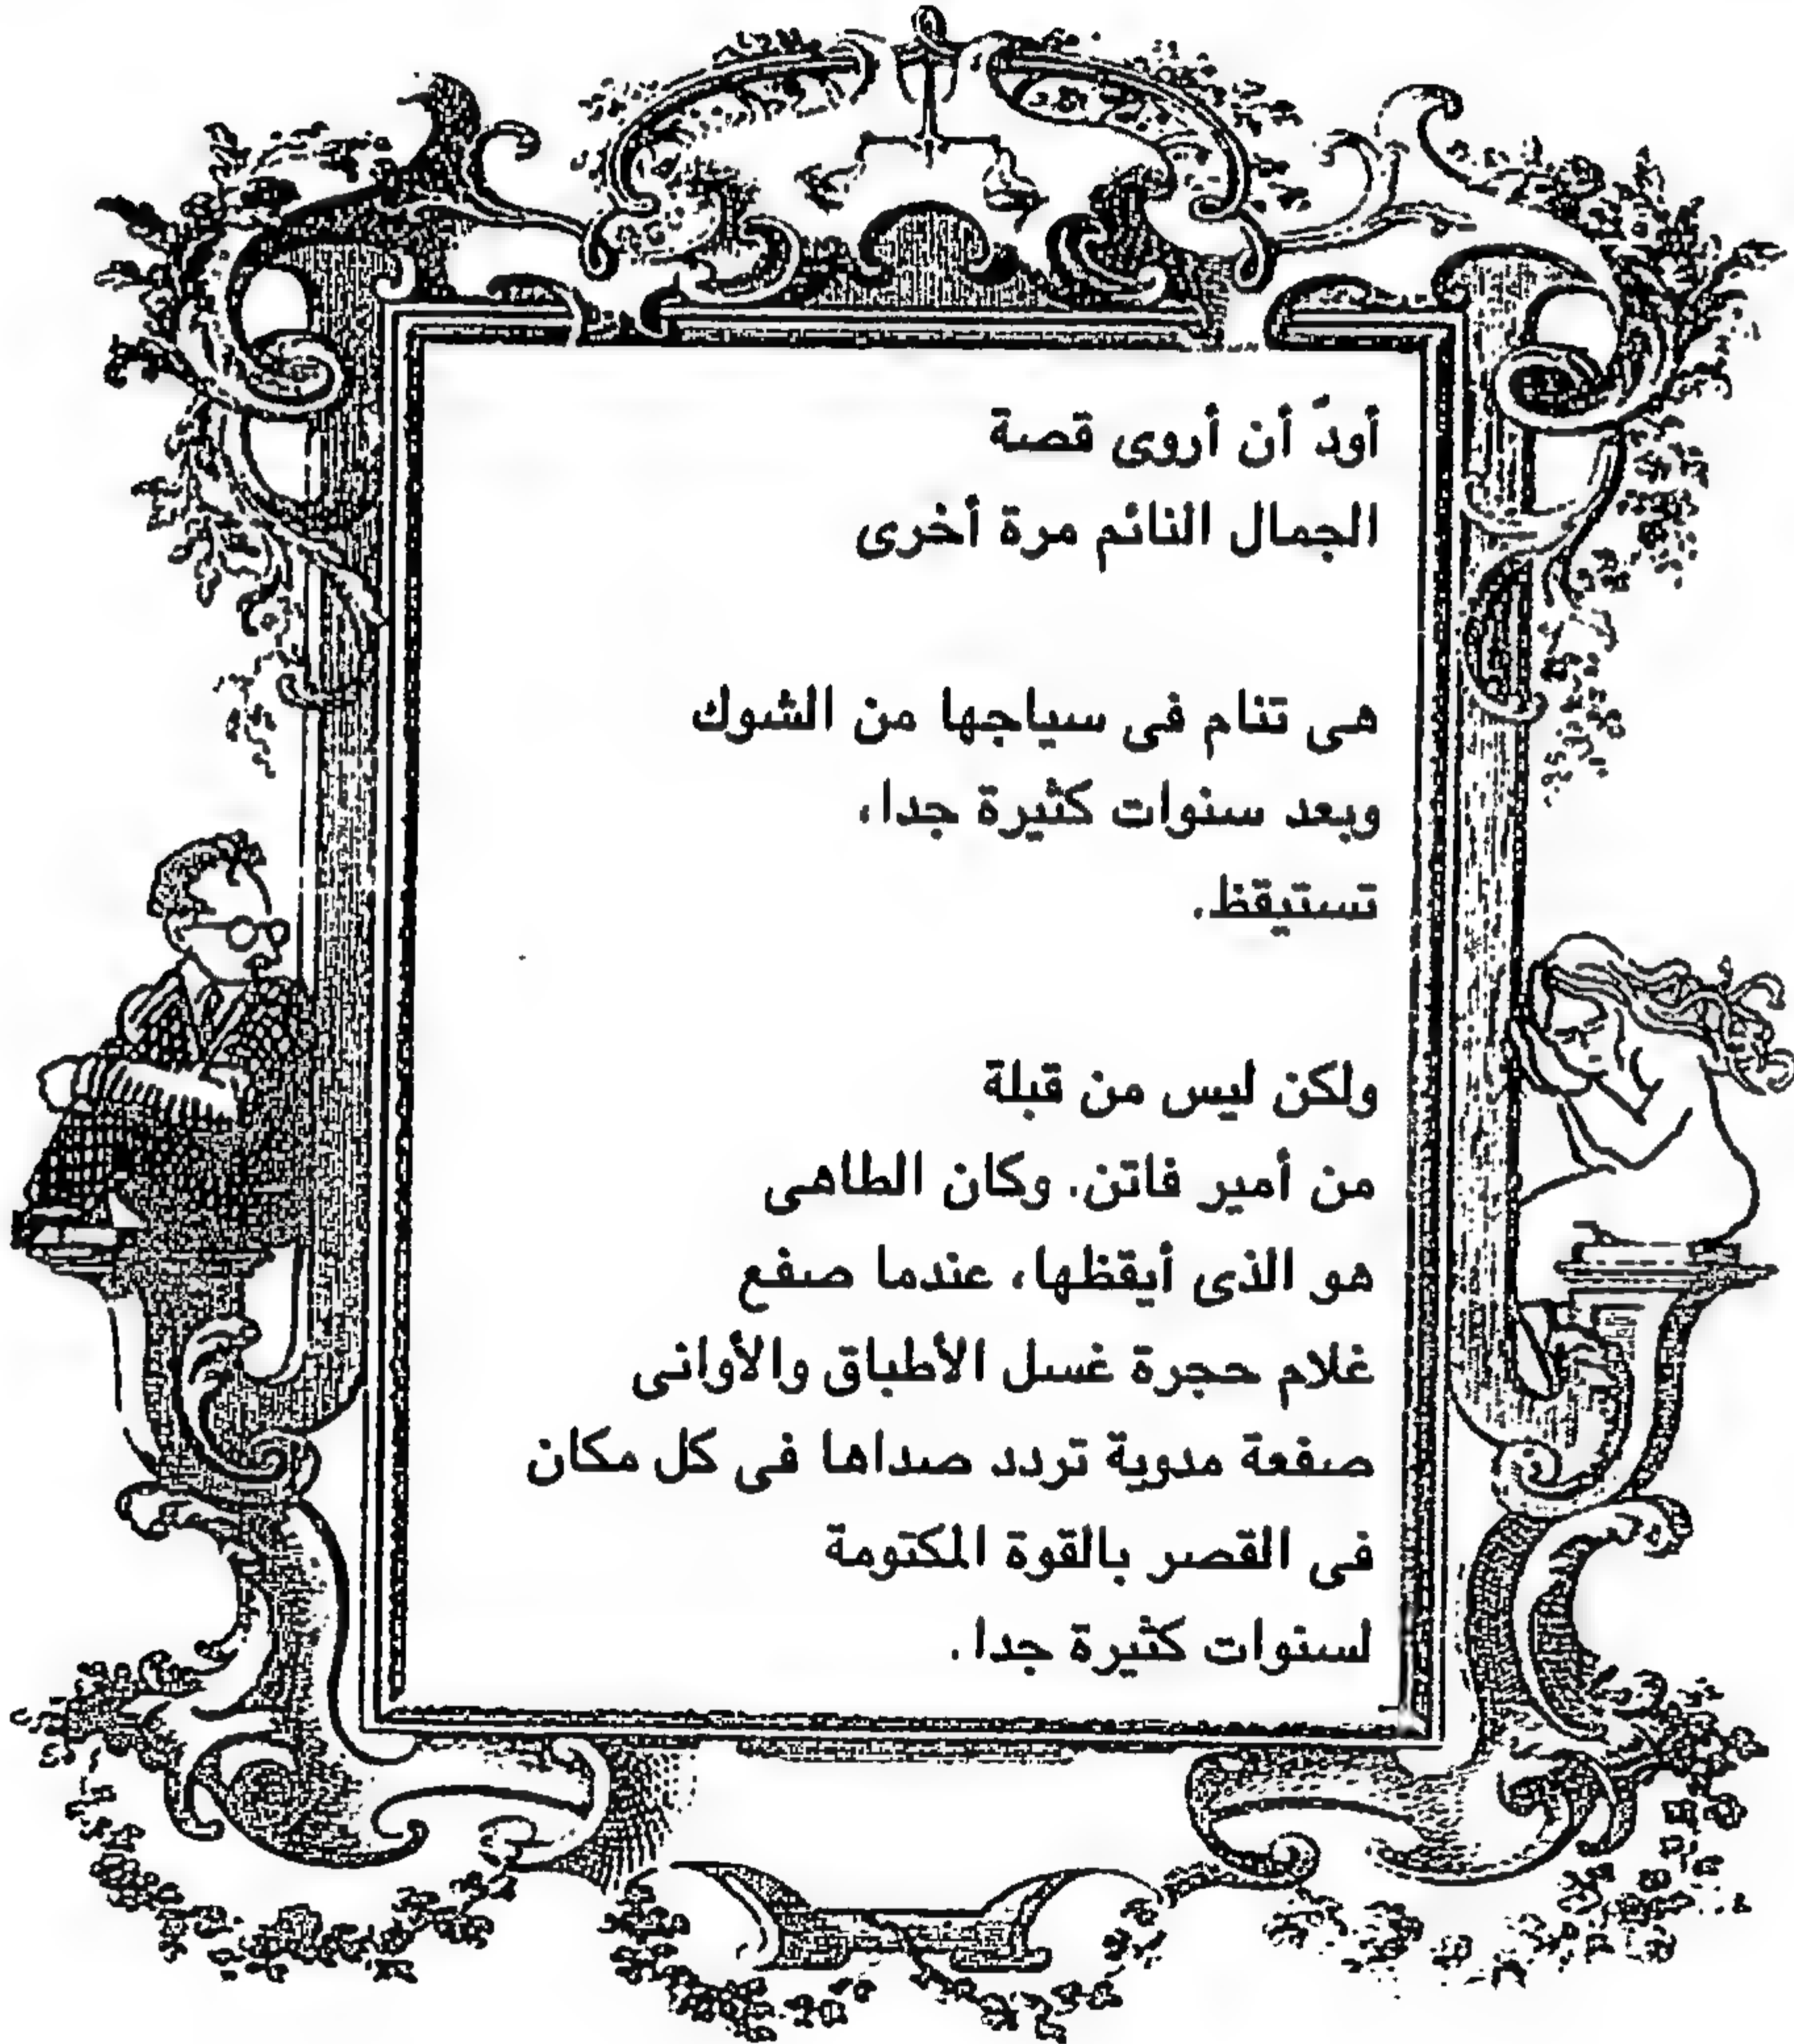 أودّ أن أروى قصة
الجمال النائم مرة أخرى
هى تنام فى سياجها من الشوك
وبعد سنوات كثيرة جدا،
تستيقظ.
ولكن ليس من قبلة
من أمير فاتن. وكان الطاهى
هو الذى أيقظها، عندما صفع
غلام حجرة غسل الأطباق والأوانى
صفعة مدوية تردد صداها فى كل مكان
فى القصر بالقوة المكتومة
لسنوات كثيرة جدا.